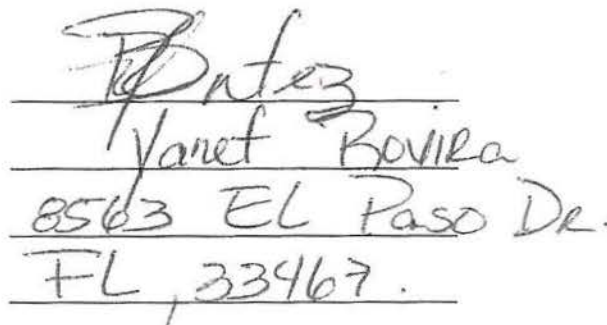 Yanet Rovira
8563 EL Paso DR.
FL, 33467.